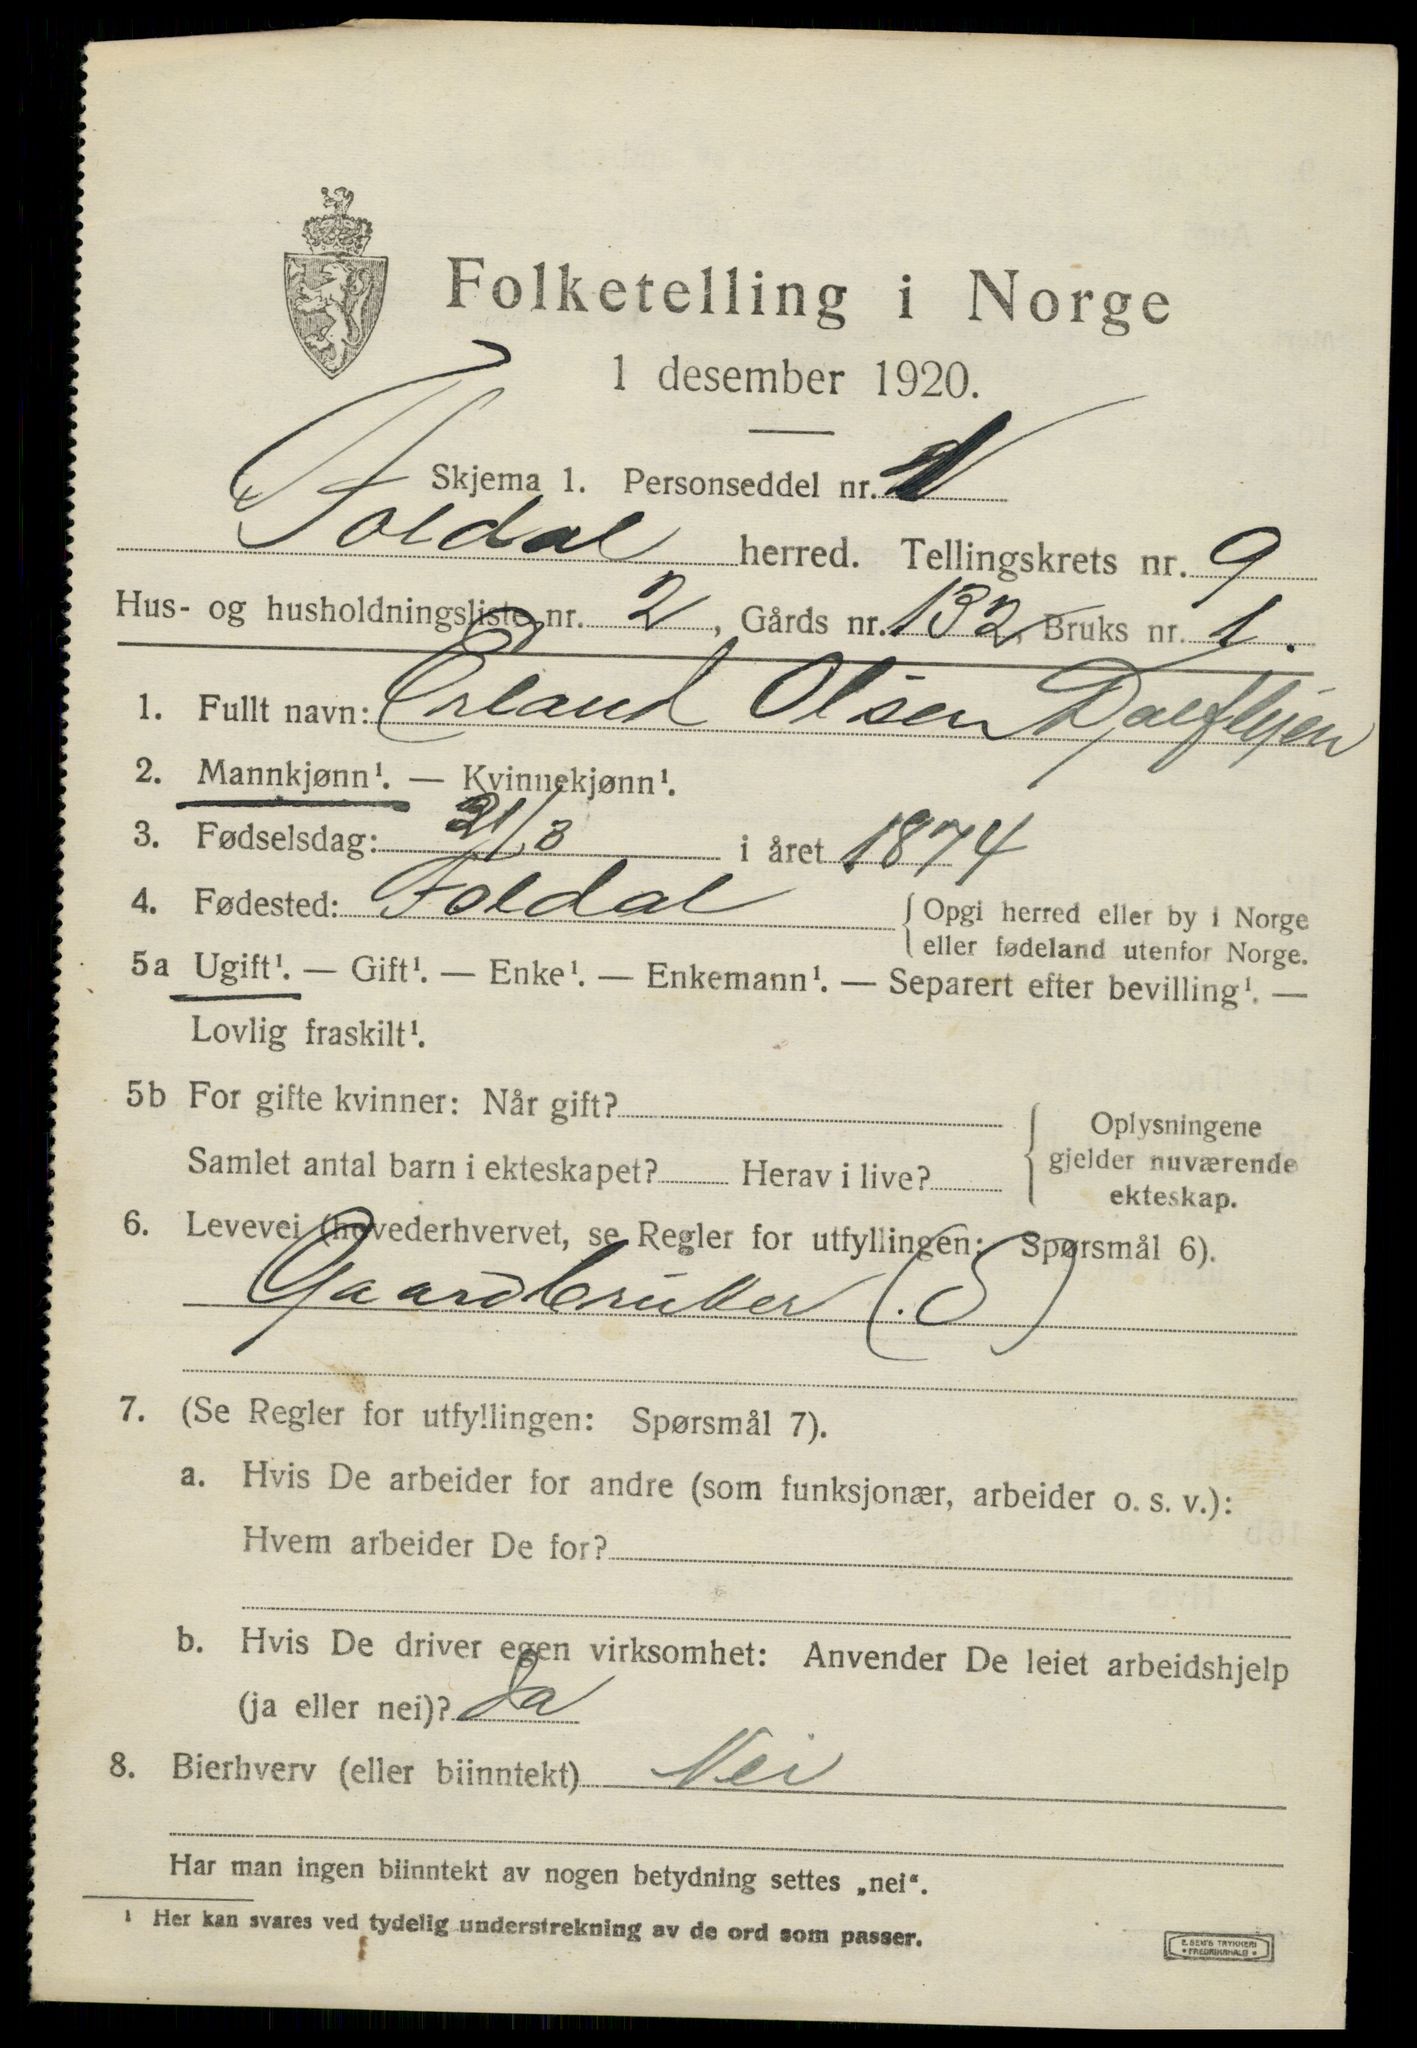 Folketelling i Norge
1 desember 1920.
Skjema 1. Personseddel nr.
Foldal herred. Tellingskrets nr. 9
Hus- og husholdningsliste nr. 2, Gårds nr. 132, Bruks nr. 1.
1. Fullt navn: Erland Olsen
2. Mannkjønn¹. — Kvinnekjønn¹.
3. Fødselsdag: 21/3 i året 1874
4. Fødested: Foldal { Opgi herred eller by i Norge
eller fødeland utenfor Norge.
5a Ugift¹. — Gift¹. — Enke¹. — Enkemann¹. — Separert efter bevilling¹. —
Lovlig fraskilt¹.
5b For gifte kvinner: Når gift?
Samlet antal barn i ekteskapet? Herav i live?
{ Oplysningene
gjelder nuværende
ekteskap.
6. Levevei (hovederhvervet, se Regler for utfyllingen: Spørsmål 6).
Gaardbruker (S)
7. (Se Regler for utfyllingen: Spørsmål 7).
a. Hvis De arbeider for andre (som funksjonær, arbeider o. s. v.):
Hvem arbeider De for?
b. Hvis De driver egen virksomhet: Anvender De leiet arbeidshjelp
(ja eller nei)? Ja
8. Bierhverv (eller biinntekt) Nei
Har man ingen biinntekt av nogen betydning settes „nei“.
¹ Her kan svares ved tydelig understrekning av de ord som passer.
E. SEM'S TRYKKERI
• FREDRIKSHALD •